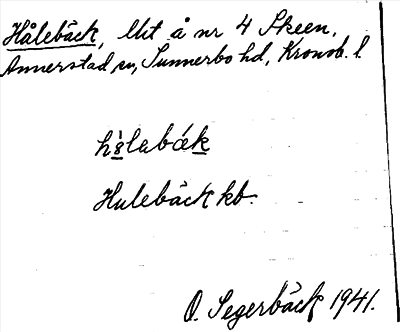 Hålebäck, lht å nr 4 Skeen,
Annerstad sn, Sunnerbo hd, Kronob. l.
Hulebäck kb.
O. Segerbäck 1941.